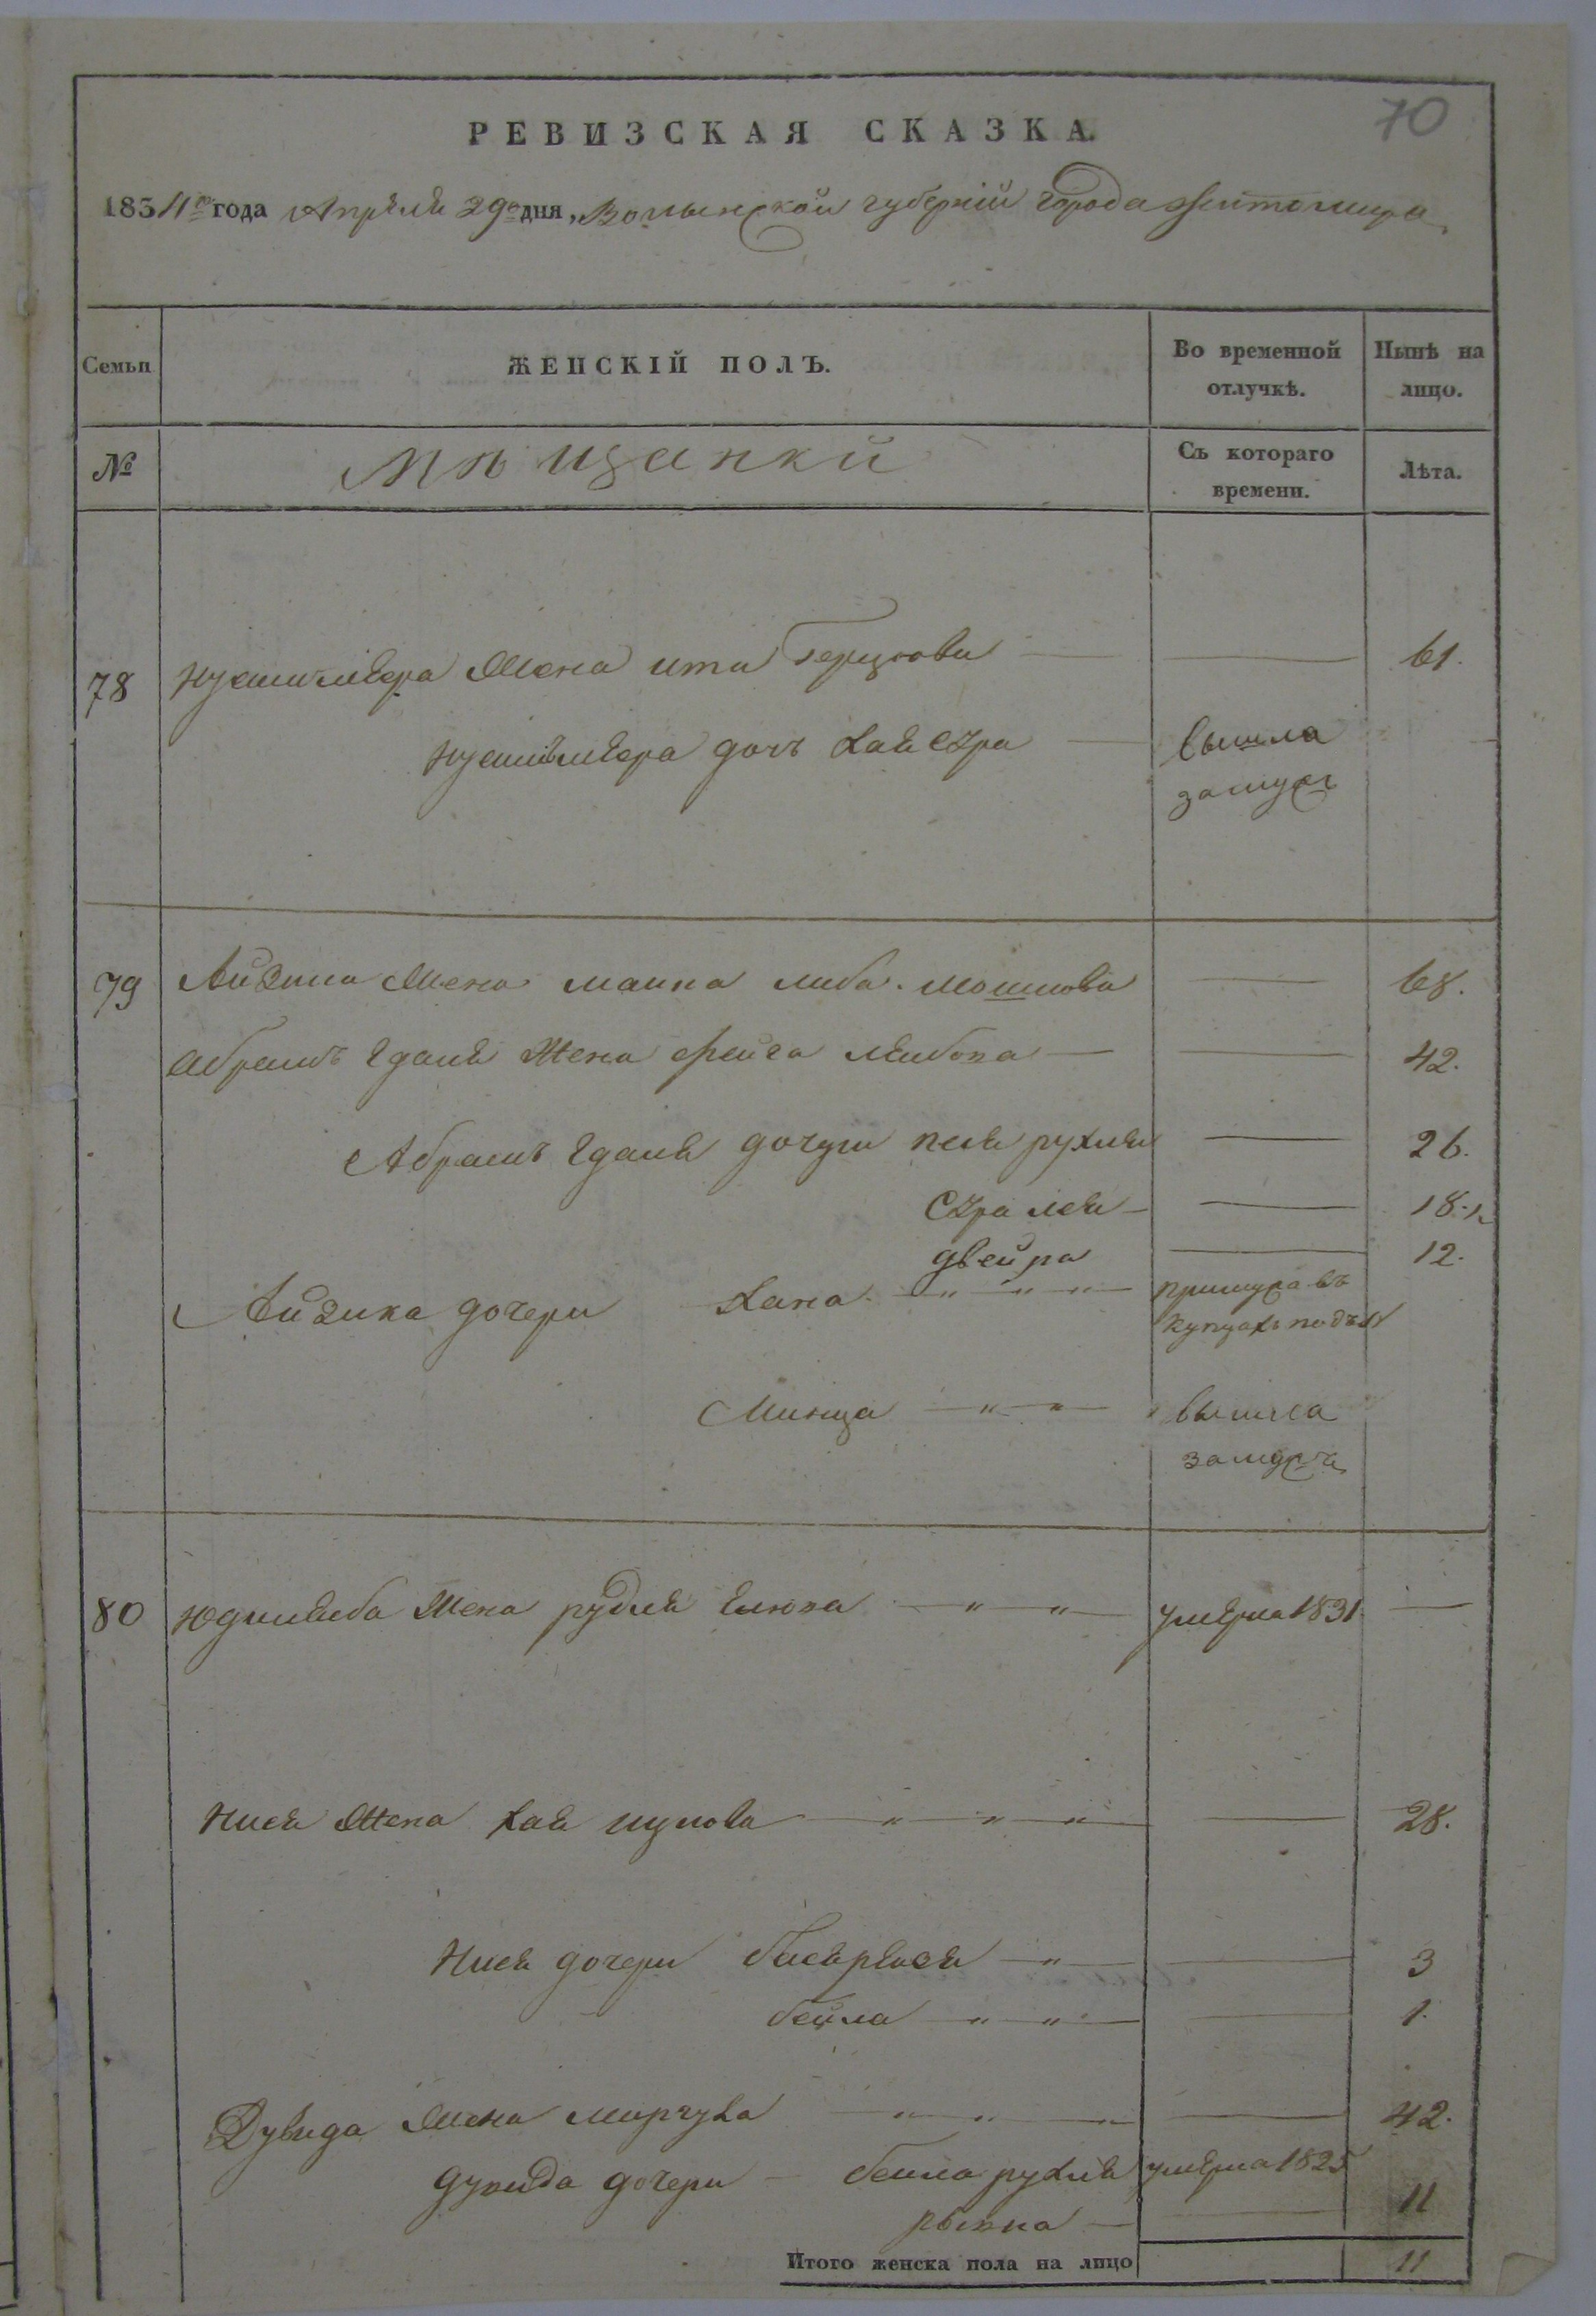 70
РЕВИЗСКАЯ СКАЗКА.
1834го года Апреля 29го дня, Волынской губерній города Житомира
Семьи
ЖЕНСКІЙ ПОЛЪ.
Во временной отлучкѣ.
Нынѣ на лицо.
№
Мѣщанки
Съ котораго времени.
Лѣта.
78 жена ита Герцкова 61.
дочъ хая сура вышла
замужъ
79 Айзика жена малка либа мошкова 68.
Абрамъ жена фейга лейбова 42.
Абрамъ дочери песя рухля 26.
Сура лея 18.
двейра 12.
Айзика дочери хана въ
купцахъ подъ №
Минца вышла
замужъ
80 Юдклейба жена рухля умерла 1831.
Нися жена хая шулова 28.
Нися дочери 3
бейла 1.
Дувида жена 42.
дувида дочери бейла рухля умерла 1825
рывка 11
Итого женска пола на лицо 11